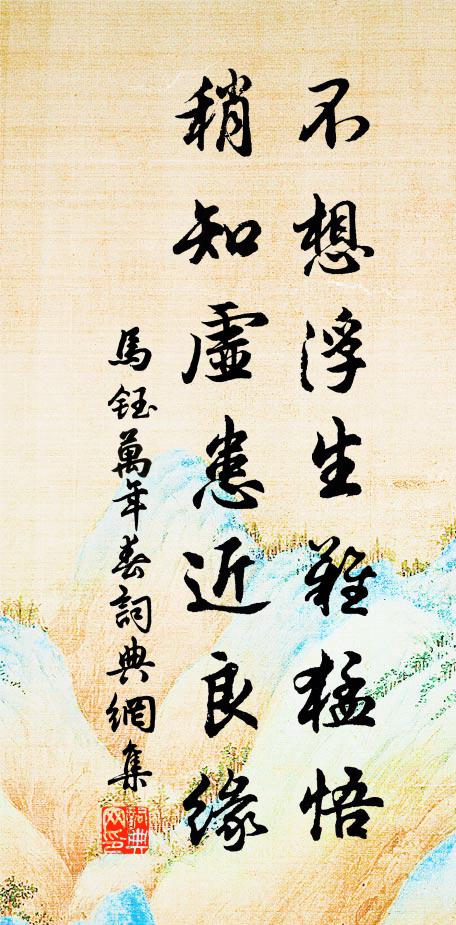 不想浮生難猛悟
稍知虛患近良緣
馬鈺萬年春詞典網集
詞典
网印